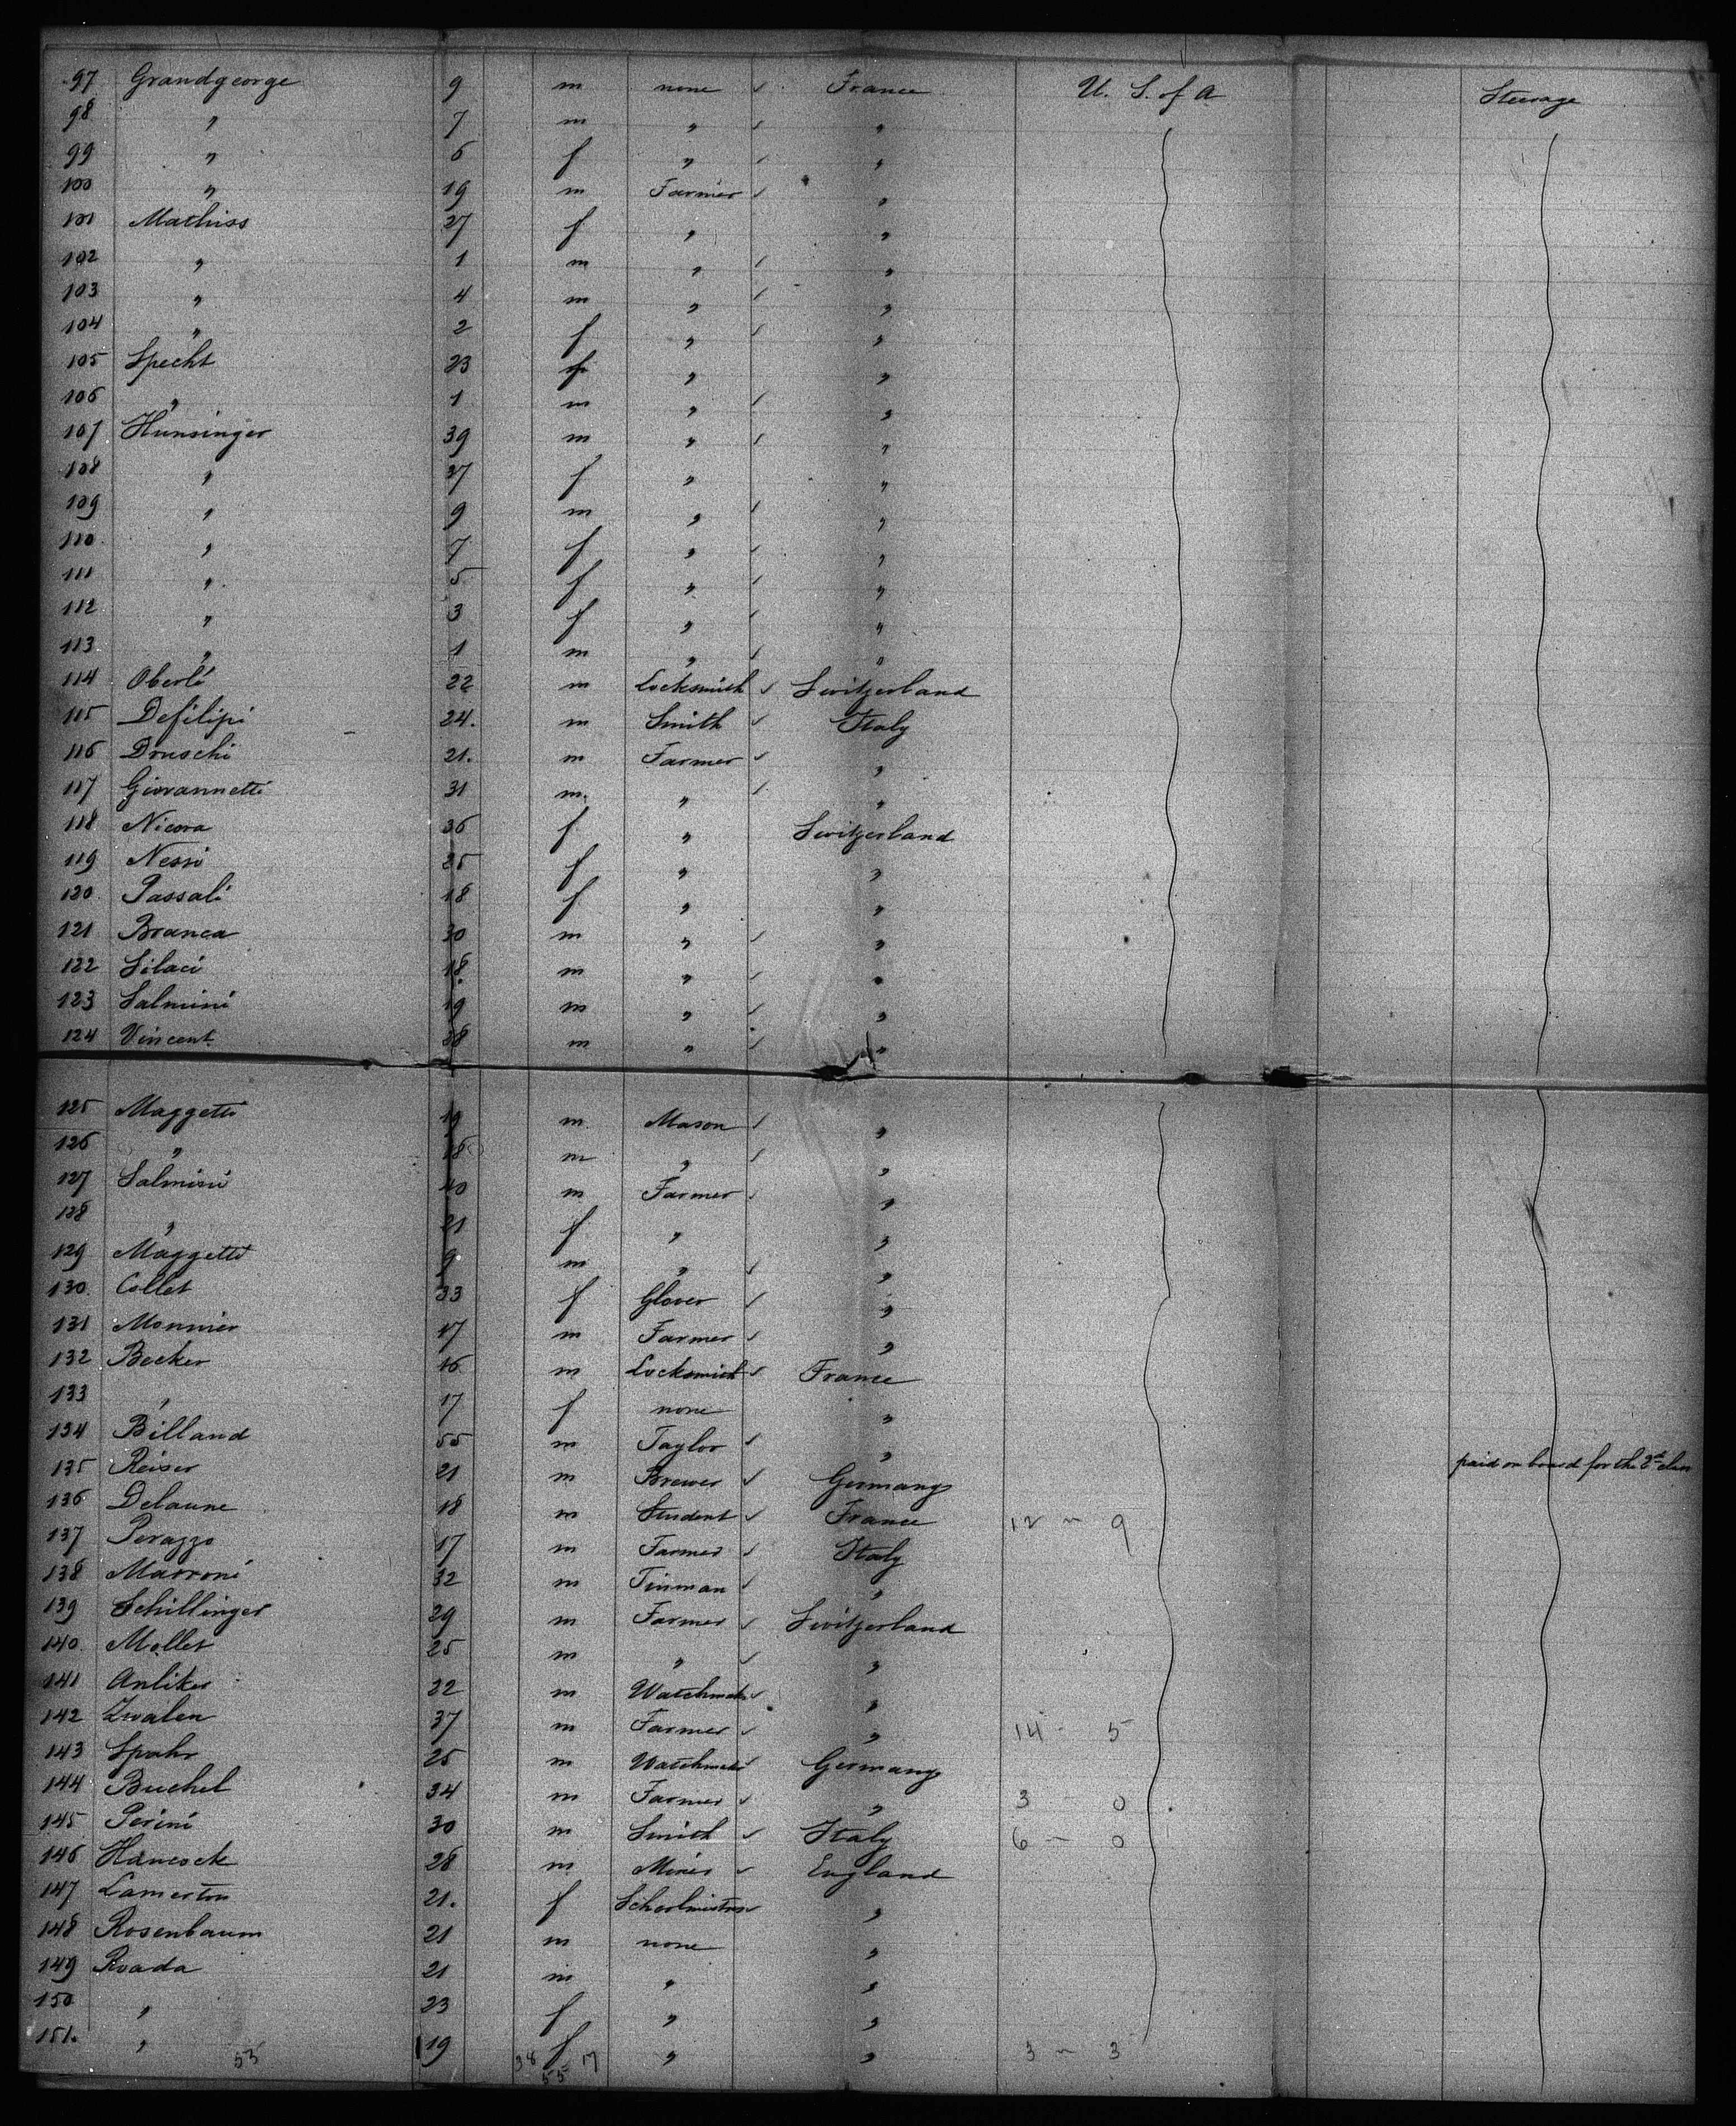 97 Grandgeorge 9 m none ✓ France U. S. of A Steerage
98 " 7 m " ✓ "
99 " 6 f " ✓ "
100 " 19 m Farmer ✓ "
101 Mathiss 27 f " "
102 " 1 m " ✓ "
103 " 4 m " ✓ "
104 " 2 f " ✓ "
105 Specht 23 f " "
106 " 1 m " ✓ "
107 Hunsinger 39 m " ✓ "
108 " 37 f " "
109 " 9 m " ✓ "
110 " 7 f " ✓ "
111 " 5 f " ✓ "
112 " 3 f " ✓ "
113 " 1 m " ✓ "
114 Oberlé 22 m Locksmith ✓ Switzerland
115 Defilipi 24. m Smith ✓ Italy
116 Druschi 21. m Farmer ✓ "
117 Giovannetti 31 m. " ✓ "
118 Nicora 36 f " Switzerland
119 Nessi 25 f " "
120 Passali 18 f " "
121 Branca 30 m " ✓ "
122 Silaci 18. m " ✓ "
123 Salmini 19 m " ✓ "
124 Vincent 38 m " ✓ "
125 Maggetti 19 m. Mason ✓ "
126 " 18 m " ✓ "
127 Salmini 40 m Farmer ✓ "
128 " 21 f " "
129 Maggetti 9. m " ✓ "
130. Collet 33 f Glover ✓ "
131 Monnier 47 m Farmer ✓ "
132 Becker 16 m Locksmith ✓ France
133 " 17 f none "
134 Billand 55 m Taylor ✓ "
135 Reiser 21 m Brewer ✓ Germany paid on board for the 2nd class
136 Delaune 18 m Student ✓ France 12 ~ 9
137 Perazzo 17 m Farmer ✓ Italy
138 Marroni 32 m Tinman ✓ "
139 Schillinger 29 m Farmer ✓ Switzerland
140. Mollet 25 m " ✓ "
141 Anliker 22 m Watchmaker ✓ "
142 Zwalen 37 m Farmer ✓ " 14 - 5
143 Spahr 25 m Watchmaker ✓ Germany
144 Buchel 34 m Farmer ✓ " 3 0
145 Perini 30 m Smith ✓ Italy 6 - 0
146 Hancock 28 m Miner ✓ England
147 Lamerton 21. f Schoolmistress ✓ "
148 Rosenbaum 21 m none "
149 Roada 21 m " "
150 " 23 f " "
151. " 19 f " " 3 ~ 3
53 38 17
55